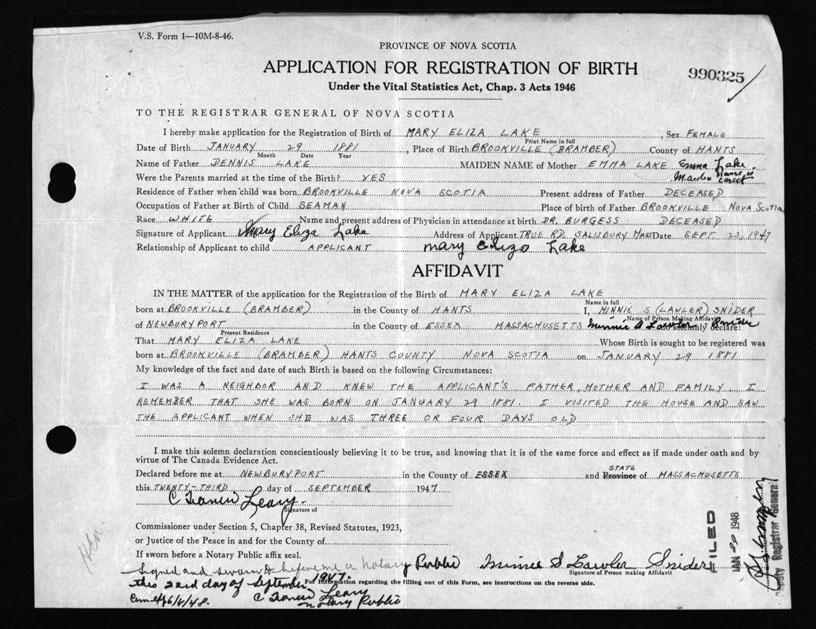 V.S. Form 1—10M-8-46.
PROVINCE OF NOVA SCOTIA
APPLICATION FOR REGISTRATION OF BIRTH
990325
Under the Vital Statistics Act, Chap. 3 Acts 1946
TO THE REGISTRAR GENERAL OF NOVA SCOTIA
I hereby make application for the Registration of Birth of MARY ELIZA LAKE, Sex FEMALE
Print Name in full
Date of Birth JANUARY 29 1881, Place of Birth BROOKVILLE (BRAMBER) County of HANTS
Month Date Year
Name of Father DENNIS LAKE MAIDEN NAME of Mother EMMA LAKE Emma Lake
Maiden Name is correct
Were the Parents married at the time of the Birth? YES
Residence of Father when child was born BROOKVILLE NOVA SCOTIA Present address of Father DECEASED
Occupation of Father at Birth of Child SEAMAN Place of birth of Father BROOKVILLE NOVA SCOTIA
Race WHITE Name and present address of Physician in attendance at birth DR. BURGESS DECEASED
Signature of Applicant Mary Eliza Lake Address of Applicant TRUE RD. SALISBURY MASS Date SEPT. 23, 1947
Relationship of Applicant to child APPLICANT Mary Eliza Lake
AFFIDAVIT
IN THE MATTER of the application for the Registration of the Birth of MARY ELIZA LAKE
Name in full
born at BROOKVILLE (BRAMBER) in the County of HANTS I, MINNIE S (LAWLER) SNIDER
Name of Person Making Affidavit
of NEWBURYPORT in the County of ESSEX MASSACHUSETTS Minnie S Lawler Snider solemnly declare:
Present Residence
That MARY ELIZA LAKE Whose Birth is sought to be registered was
born at BROOKVILLE (BRAMBER) HANTS COUNTY NOVA SCOTIA on JANUARY 29 1881
My knowledge of the fact and date of such Birth is based on the following Circumstances:
I WAS A NEIGHBOR AND KNEW THE APPLICANT'S FATHER, MOTHER AND FAMILY. I
REMEMBER THAT SHE WAS BORN ON JANUARY 29 1881. I VISITED THE HOUSE AND SAW
THE APPLICANT WHEN SHE WAS THREE OR FOUR DAYS OLD
I make this solemn declaration conscientiously believing it to be true, and knowing that it is of the same force and effect as if made under oath and by
virtue of The Canada Evidence Act.
Declared before me at NEWBURYPORT in the County of ESSEX and Province STATE of MASSACHUSETTS
this TWENTY-THIRD day of SEPTEMBER 1947
C Francis Leary
Signature of
Commissioner under Section 5, Chapter 38, Revised Statutes, 1923,
or Justice of the Peace in and for the County of
If sworn before a Notary Public affix seal.
Signed and sworn to before me a notary Public Minnie S Lawler Snider
Signature of Person making Affidavit
this 23rd day of September 1947.
For information regarding the filling out of this Form, see instructions on the reverse side.
C Francis Leary
Notary Public
FILED
JAN 1948
Deputy Registrar General